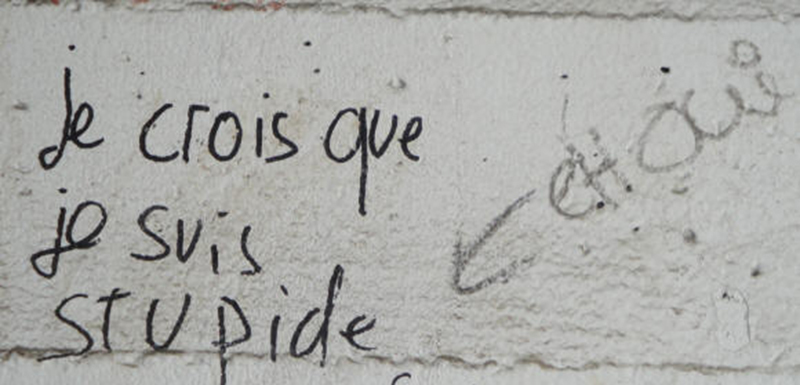 je crois que
je suis
stupide
eh oui